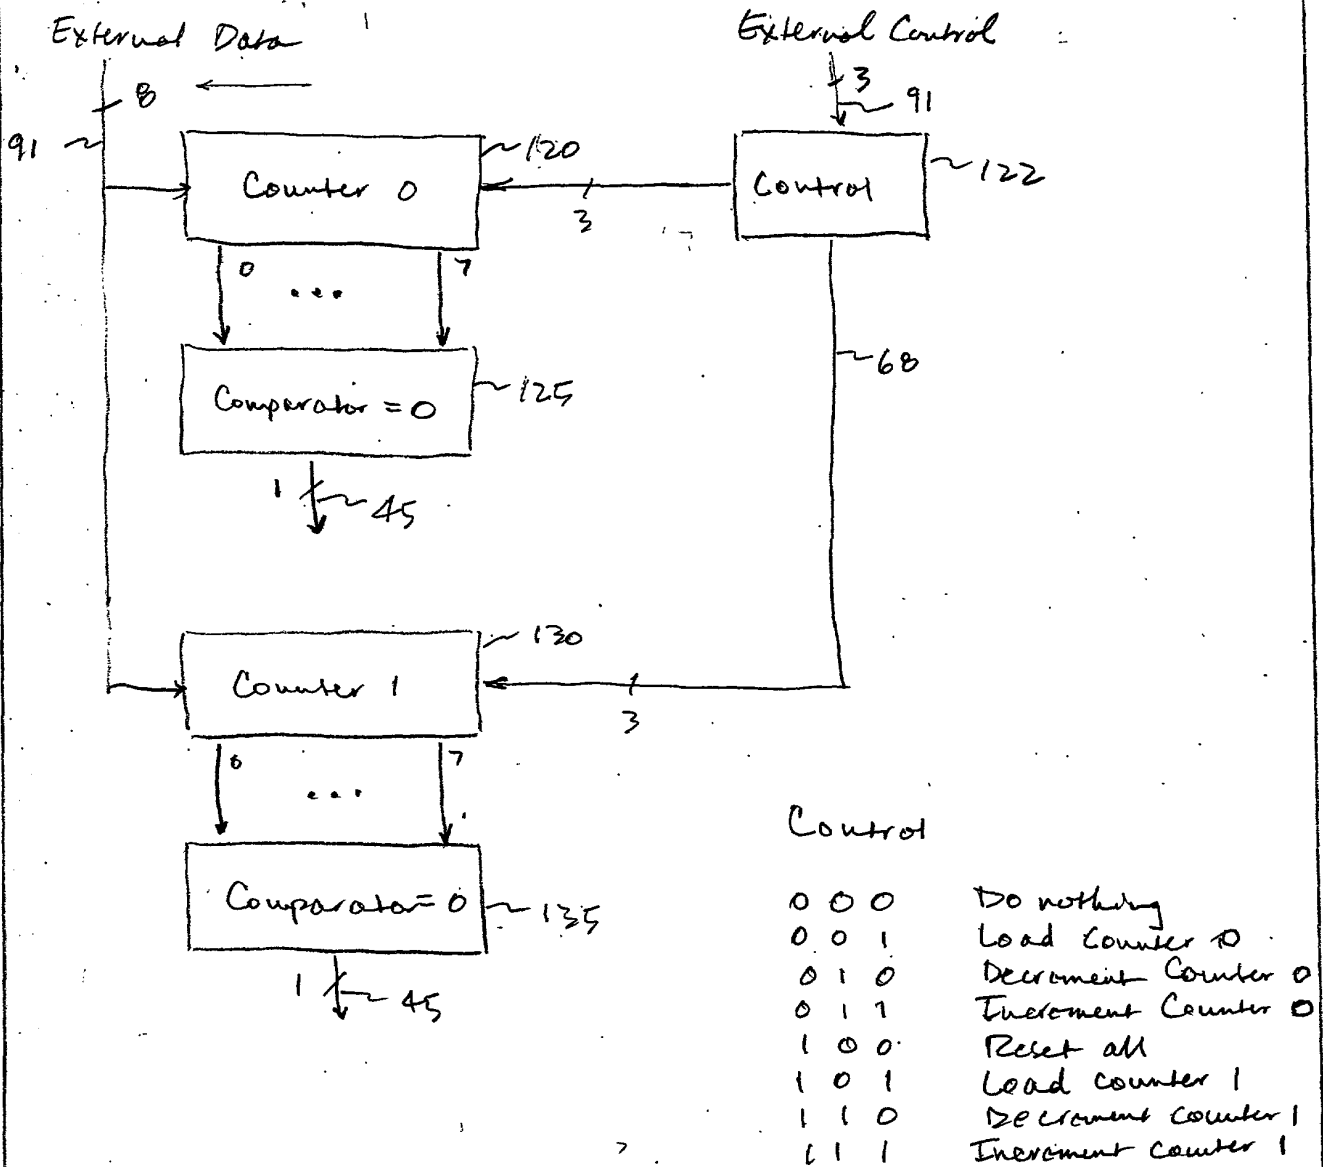 External Data
External Control
8
3
91
91
120
122
Counter 0
Control
3
0
7
...
68
125
Comparator = 0
1
45
130
Counter 1
3
0
7
...
Comparator = 0
135
1
45
Control
0 0 0 Do nothing
0 0 1 Load Counter 0
0 1 0 Decrement Counter 0
0 1 1 Increment Counter 0
1 0 0 Reset all
1 0 1 Load counter 1
1 1 0 Decrement counter 1
1 1 1 Increment counter 1